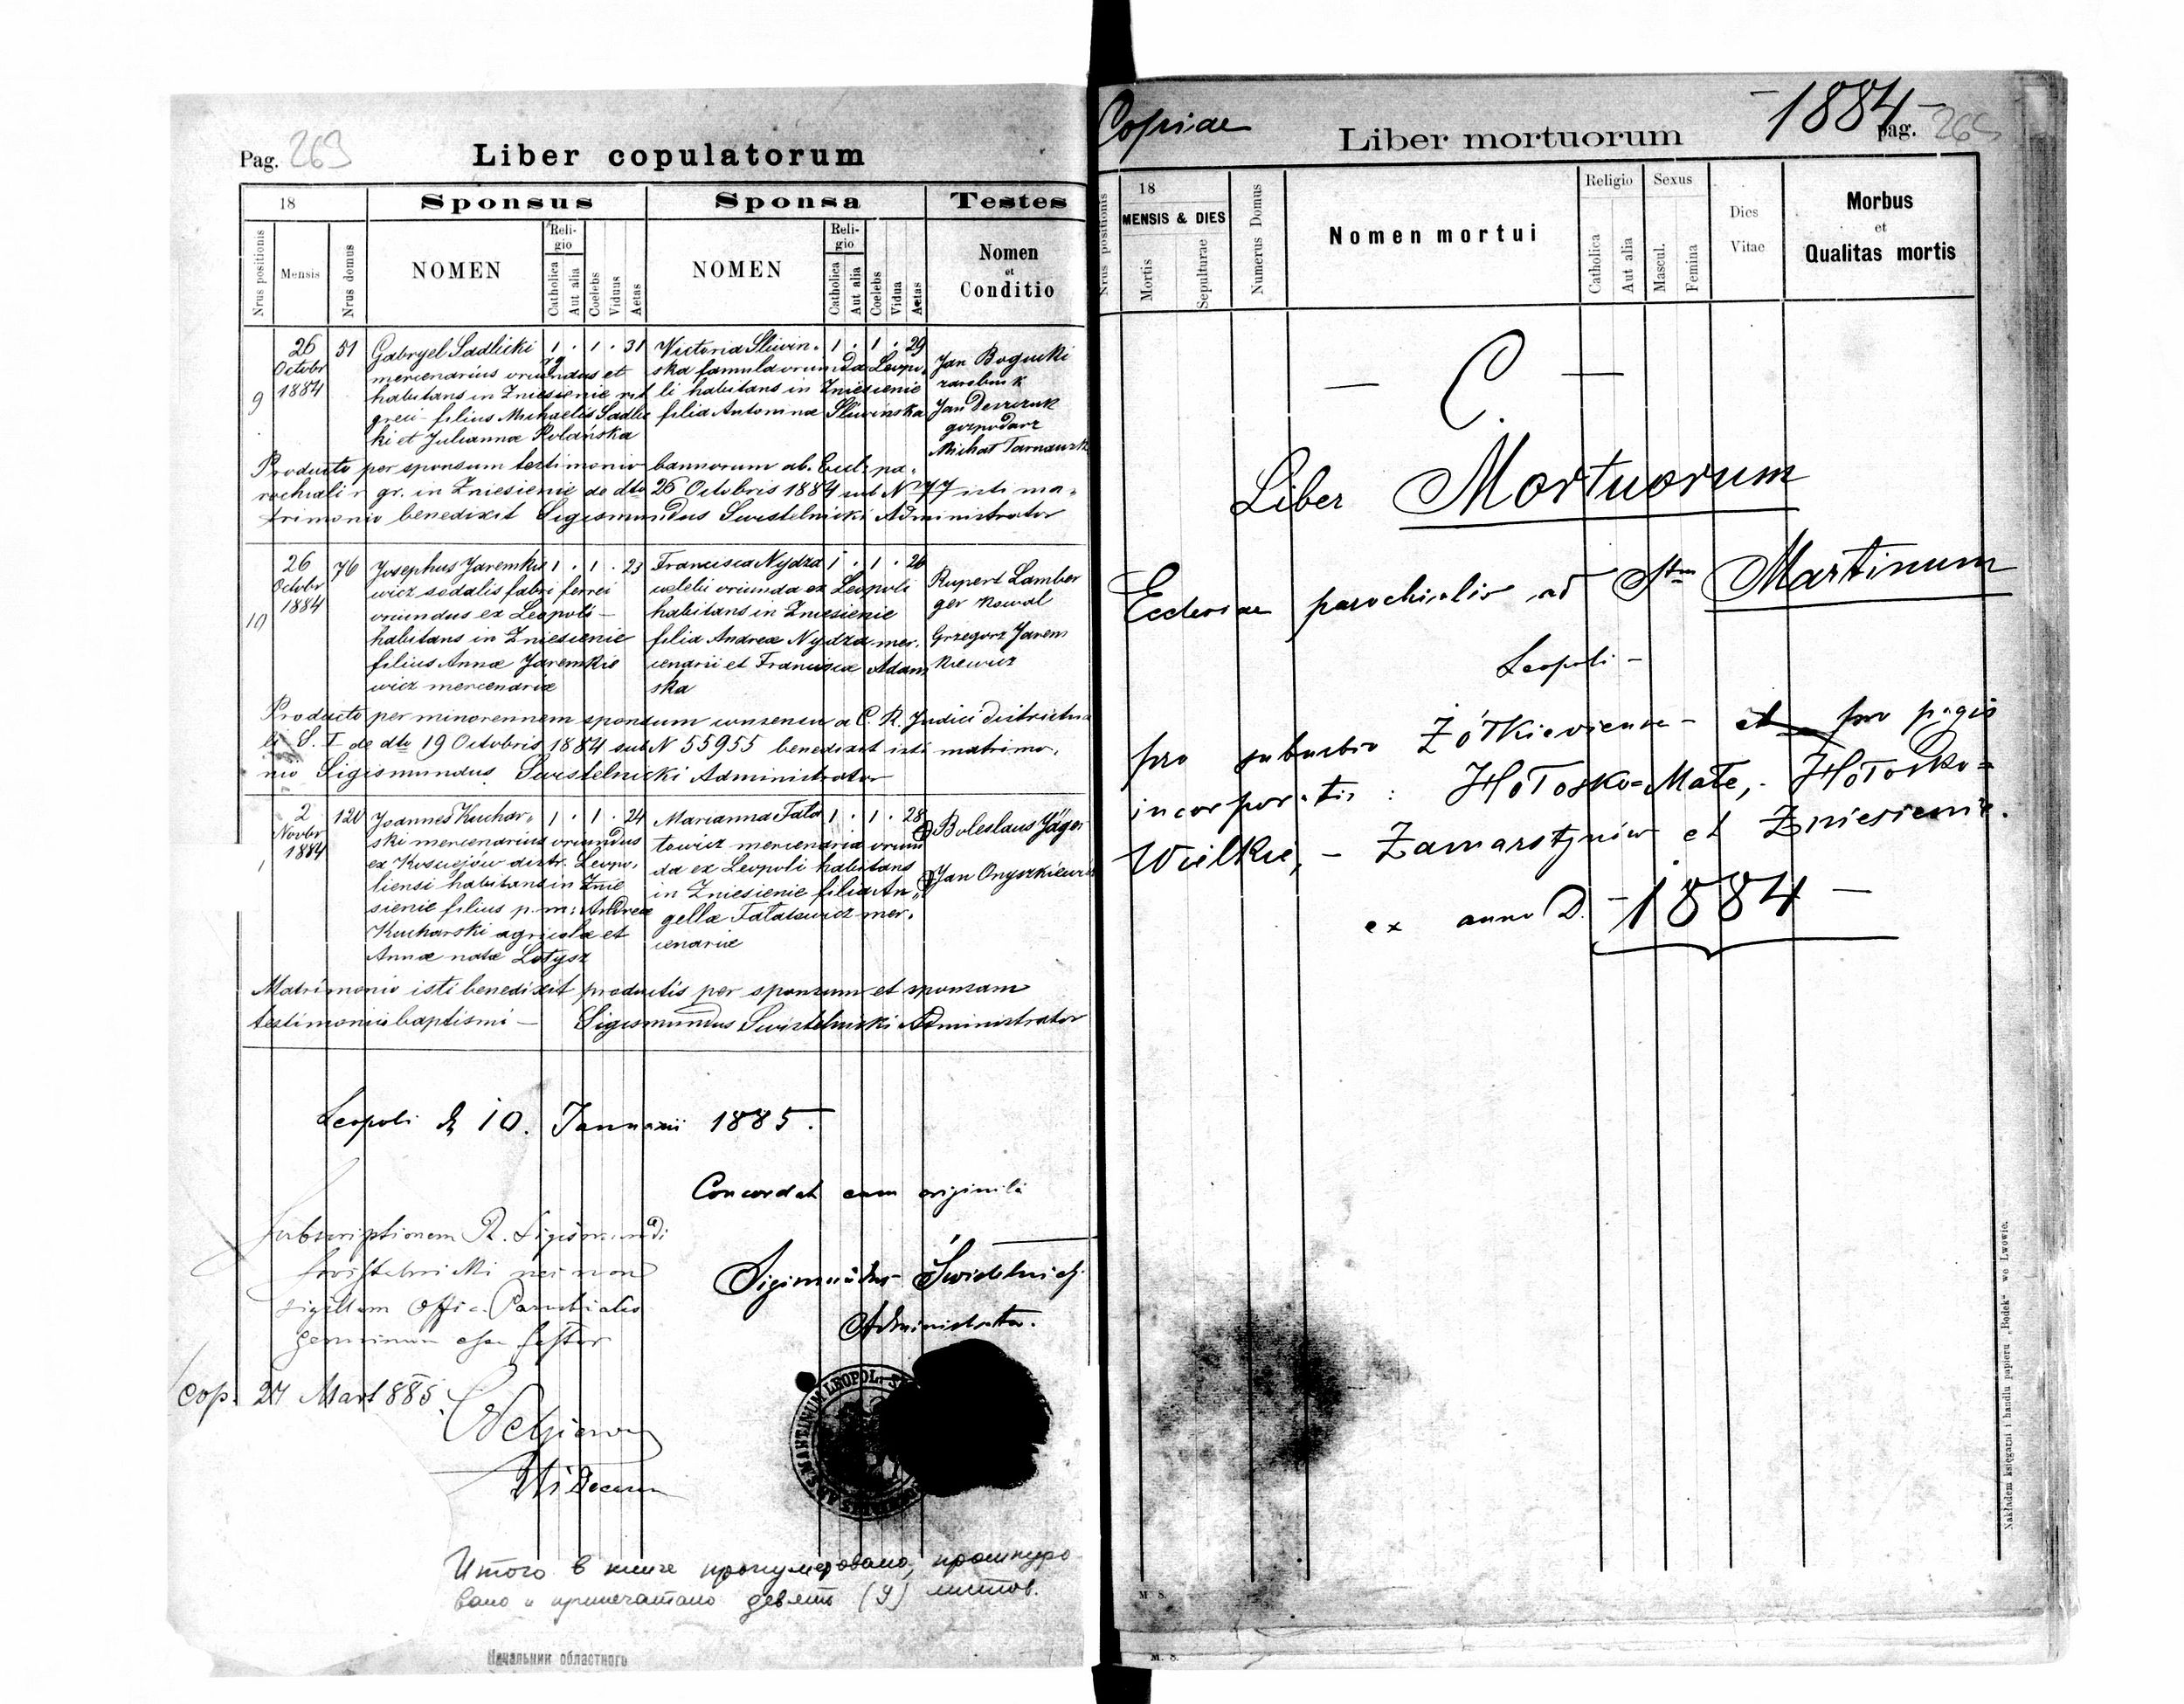 Pag. 269
Liber copulatorum
18
Sponsus
Sponsa
Testes
Nrus positionis
Mensis
Nrus domus
NOMEN
Religio
Catholica
Aut alia
Coelebs
Viduus
Aetas
NOMEN
Religio
Catholica
Aut alia
Coelebs
Vidua
Aetas
Nomen
et
Conditio
9
26
Octobr
1884
51
Gabryel Sadlicki
mercenarius oriundus et
habitans in Zniesienie rit
greci filius Michaelis Sadlic
ki et Julianna Polańska
1 . 1 . 31
Victoria Sliwin-
ska famula oriunda Leopo-
li habitans in Zniesienie
filia Antonina Sliwinska
1 . 1 . 29
Jan Bogucki
zarobnik
Jan Deszczuk
gospodarz
Michał Tarnawsk
Producto per sponsum testimonio bannorum ab. Eccl. pa-
rochiali r. gr. in Zniesienie de dto 26 Octobris 1884 sub N 77 isti ma-
trimonio benedixit Sigismundus Swistelnicki Administrator
10
26
Octobr
1884
76
Josephus Jaremkie
wicz sodalis fabri ferrei
oriundus ex Leopoli -
habitans in Zniesienie
filius Annæ Jaremkie
wicz mercenariæ
1 . 1 . 23
Francisca Nydza
oriunda ex Leopoli
habitans in Zniesienie
filia Andreæ Nydza mer-
cenarii et Franciscæ Adam
ska
1 . 1 . 26
Rupert Lamber
ger kowal
Grzegorz Jarem
kiewicz
Producto per minorennem sponsum consensu a C. R. Judici districtua
li S. I de dto 19 Octobris 1884 sub N 55955 benedixit isti matrimo-
nio Sigismundus Swistelnicki Administrator
2
Novbr
1884
120
Joannes Kuchar-
ski mercenarius oriundus
ex Kosciejów distr. Leopo-
liensi habitans in Znie
sienie filius p. m. Andreæ
Kucharski agricolæ et
Annæ natæ Lotysz
1 . 1 . 24
Marianna Tała
towicz mercenaria oriun
da ex Leopoli habitans
in Zniesienie filia An-
gellæ Tałatowicz mer-
cenariæ
1 . 1 . 28
Boleslaus Jäger
Jan Onyszkiewicz
Matrimonio isti benedixit productis per sponsum et sponsam
testimoniis baptismi - Sigismundus Swistelnicki Administrator
Leopoli d. 10. Januarii 1885.
Concordat cum originali
Sigismundus Świstelnicki
Administrator.
Subscriptionem R. Sigismundi
Swistelnicki nec non
sigillum Offic. Parochialis
genuinum esse testor
Cop. 27 Mart 885.
Итого в книге пронумеровано, прошнуро
вано и припечатано девять (9) листов.
Начальник областного
Copiae
- 1884 -
Liber mortuorum
pag. 265
Nrus positionis
18
MENSIS & DIES
Mortis
Sepulturae
Numerus Domus
Nomen mortui
Religio
Catholica
Aut alia
Sexus
Mascul.
Femina
Dies
Vitae
Morbus
et
Qualitas mortis
- C. -
Liber Mortuorum
Ecclesiae parochialis ad Stm Martinum
Leopoli -
pro suburbio Żółkieviense - et pro pagis
incorporatis : Hołosko=Małe, - Hołosko=
Wielkie, - Zamarstynów et Zniesienie.
ex anno D. - 1884 -
Nakładem księgarni i handlu papieru „Bodek" we Lwowie.
M. S.
M. S.